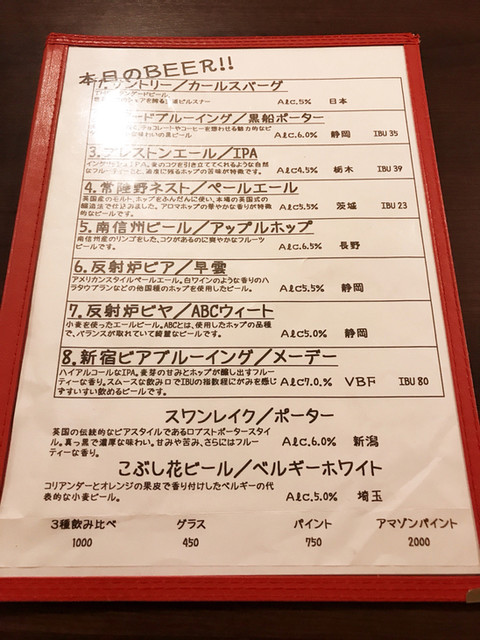 本日のBEER!!
1.サントリー／カールスバーグ
Alc.5% 日本
ドブルーイング／黒船ポーター
チョコレートやコーヒーを想わせる魅力的な
味わいの黒ビール
Alc.6.0% 静岡 IBU 35
3.プレストンエール／IPA
イングリッシュIPA。麦のコクを引き立ててくれるような自然
なフルーティーさと、適度に残るホップの苦味が特徴です。
Alc4.5% 栃木 IBU 39
4.常陸野ネスト／ペールエール
英国産のモルト、ホップをふんだんに使い、本場の英国式の
醸造法で仕込みました。アロマホップの華やかな香りが特徴
的なビールです。
Alc5.5% 茨城 IBU 23
5.南信州ビール／アップルホップ
南信州産のリンゴをした、コクがあるのに爽やかなフルーツ
ビールです。
Alc.6.5% 長野
6.反射炉ビア／早雲
アメリカンスタイルペールエール。白ワインのような香りのハ
ラタウブランなどの他国種のホップを使用したビール。
Alc5.5% 静岡
7.反射炉ビヤ／ABCウィート
小麦を使ったエールビール。ABCとは、使用したホップの品種
で、バランスが取れていて綺麗なビールです。
Alc5.0% 静岡
8.新宿ビアブルーイング／メーデー
ハイアルコールなIPA。麦芽の甘みとホップが醸し出すフルー
ティーな香り。スムースな飲み口でIBUの指数程にがみを感じ
ずすいすい飲めるビールです。
Alc7.0.% VBF IBU 80
スワンレイク／ポーター
英国の伝統的なビアスタイルであるロブストポータースタイ
ル。真っ黒で濃厚な味わい。甘みや苦み、さらにはフルー
ティーな香り。
Alc.6.0% 新潟
こぶし花ビール／ベルギーホワイト
コリアンダーとオレンジの果皮で香り付けしたベルギーの代
表的な小麦ビール。
Alc.5.0% 埼玉
3種飲み比べ グラス パイント アマゾンパイント
1000 450 750 2000